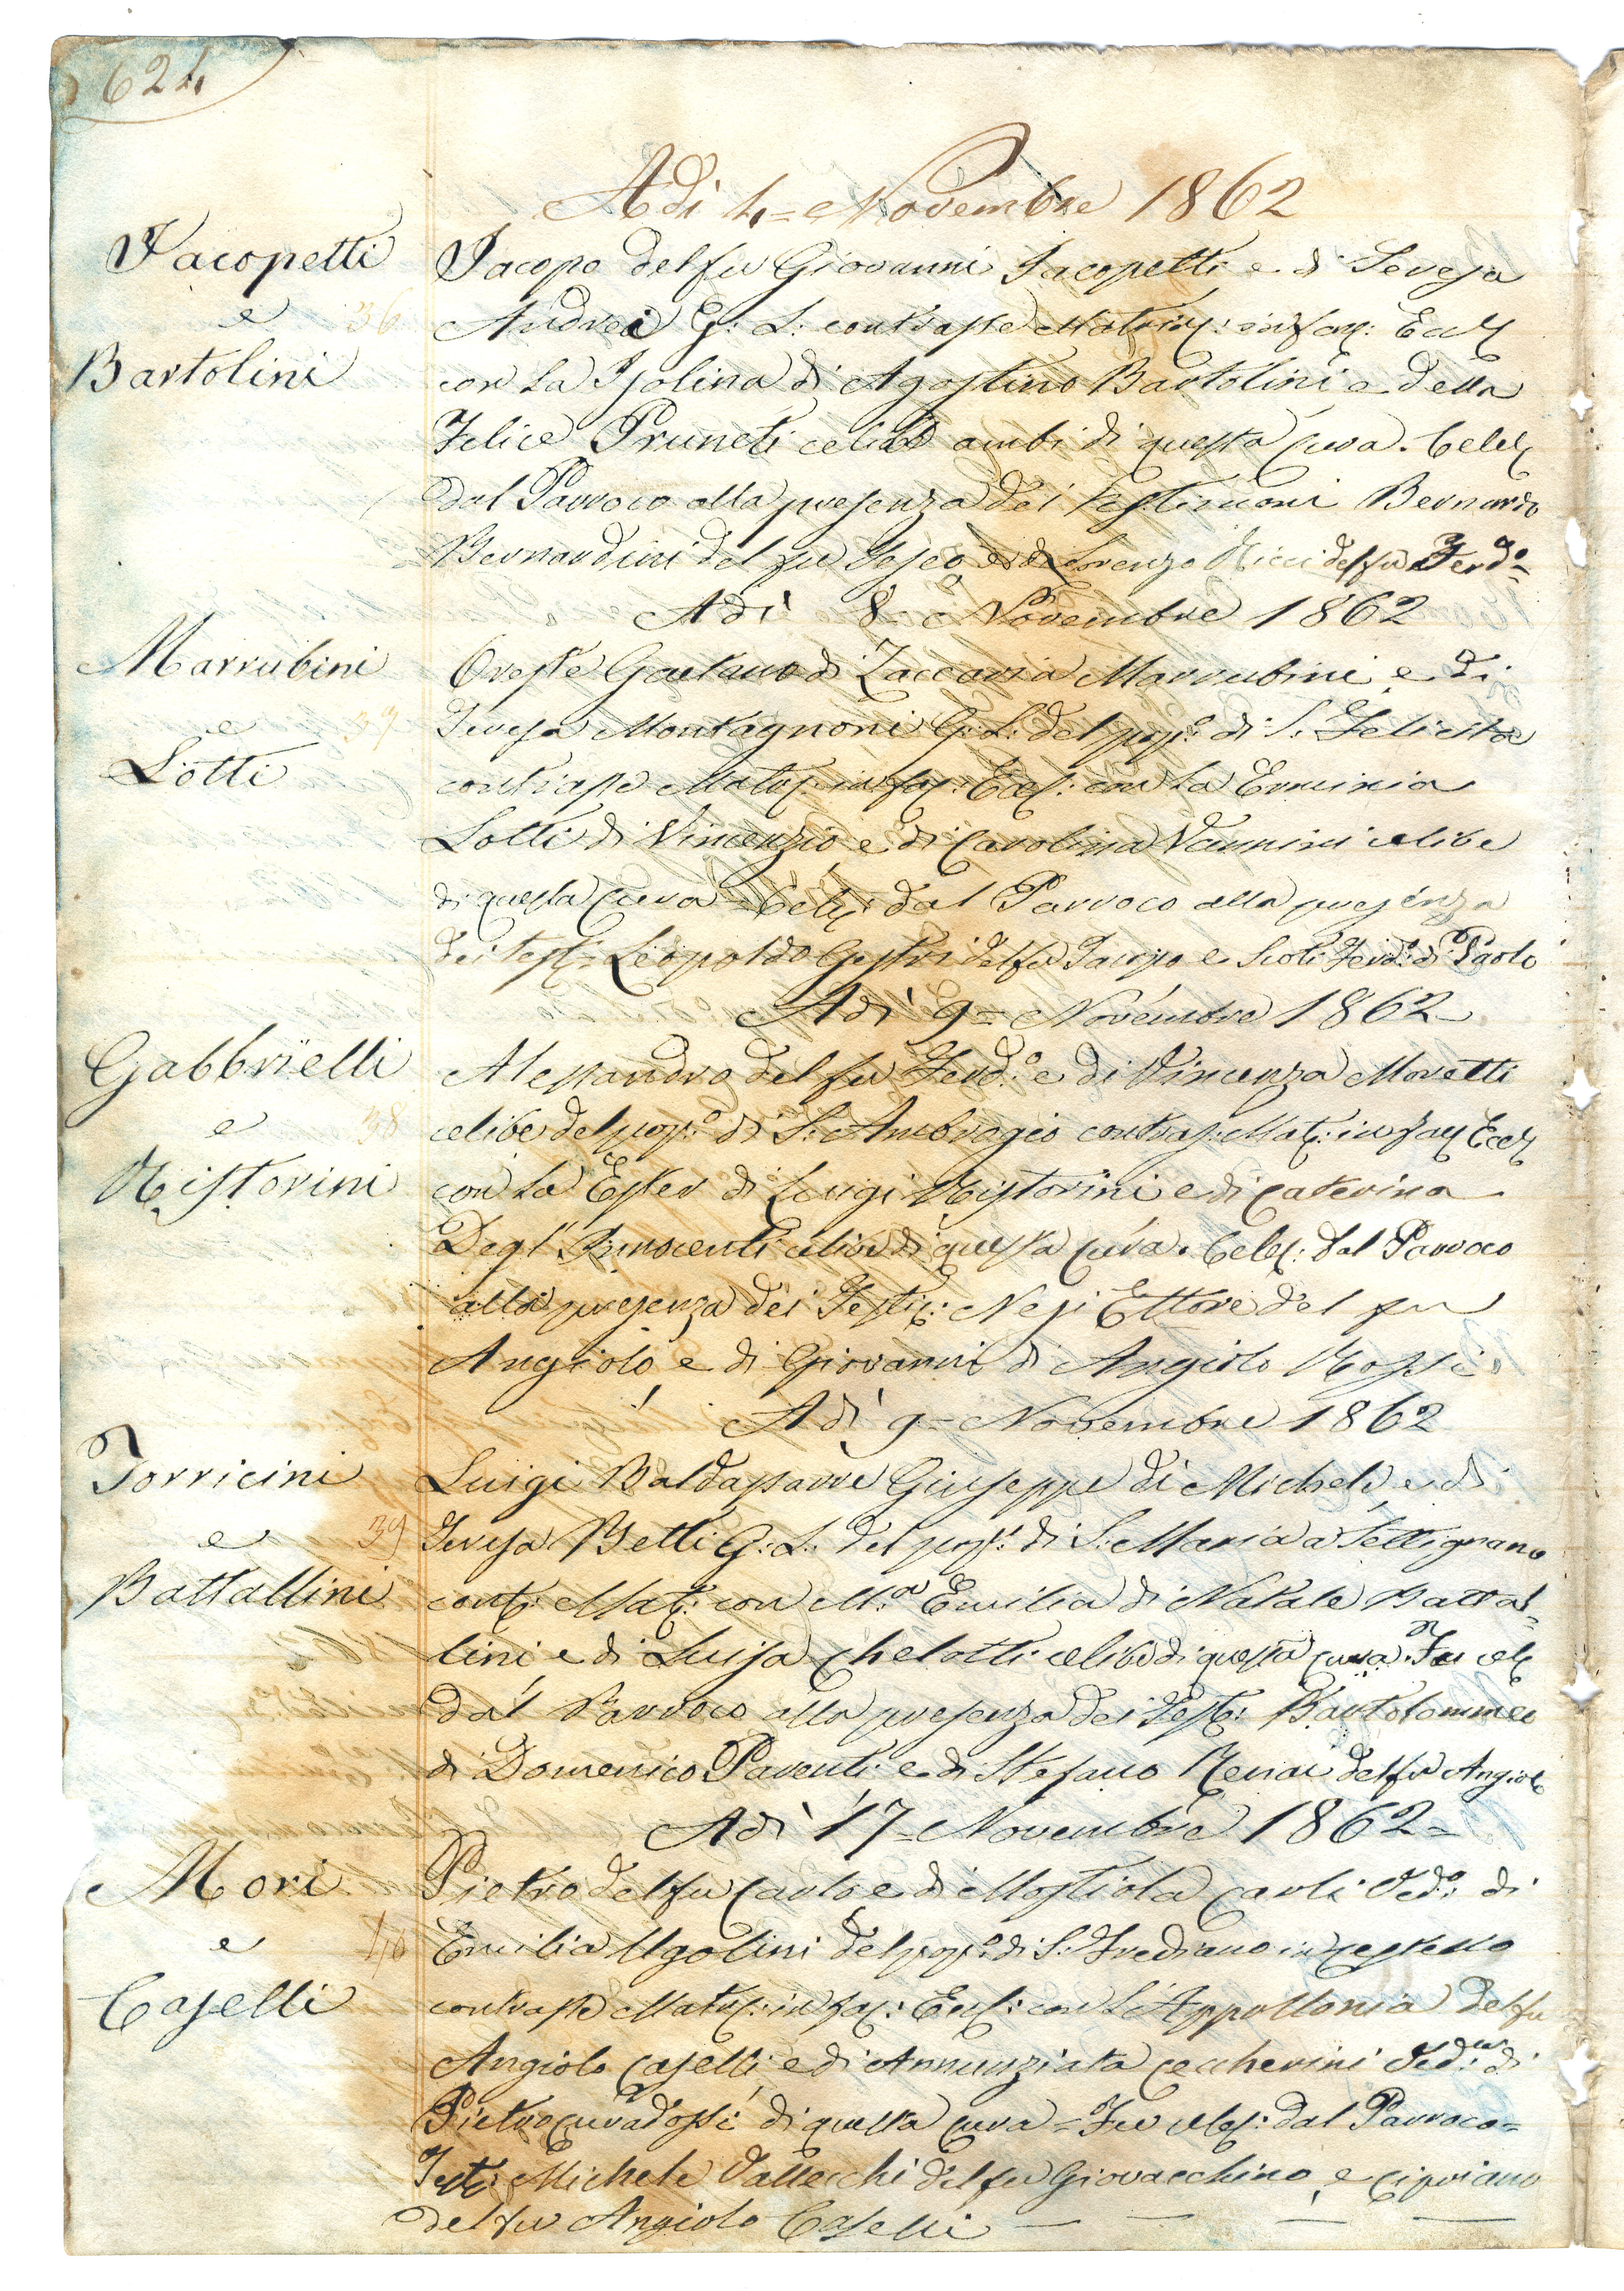 624
Adì 4= Novembre 1862
Jacopetti
e
Bartolini
36
Jacopo del fu Giovanni Jacopetti e di Teresa
Andrei G: L: contrasse Matrim: in fac: Eccl
con la Isolina di Agostino Bartolini e della
Felice Pruneti celibi ambi di questa cura. Celeb
dal Parroco alla presenza dei Testimoni Bernardo
Bernardini del fu e di Lorenzo Ricci del fu Ferdo=
Adì 8= Novembre 1862
Marrubini
e
Lotti
37
Oreste Gaetano di Zaccaria Marrubini e di
Teresa Montagnoni G: L: del popo: di S: Felicita
contrasse Matr: in fac: Eccl: con la Erminia
Lotti di Vincenzio e di Carolina Vannini celibe
di questa Cura = Celeb: dal Parroco alla presenza
dei test= Leopoldo Gestri del fu Jacopo e Scoti Ferdo: di Paolo
Adì 9= Novembre 1862
Gabbrielli
e
Ristorini
38
Alessandro del fu Ferdo: e di Vincenza Moretti
celibe del popo: di S: Ambrogio contras: Mat: in fac Eccl
con la Ester di Luigi Ristorini e di Caterina
Degl' Innocenti celibe di questa cura. Celeb: dal Parroco
alla presenza dei Testi: Nesi Ettore del fu
Angiolo e di Giovanni di Angiolo Rossi.
Adì 9= Novembre 1862
Torricini
e
Battallini
39
Luigi Baldassarre Giuseppe di Michele e di
Teresa Betti G: L: del popo: di S: Maria a Settignano
cont: Mat: con M:a Emilia di Natale Battal=
lini e di Luisa Chelotti celibe di questa cura. Fu cele
dal Parroco alla presenza dei Test: Bartolommeo
di Domenico Parenti e di Stefano del fu Angiolo
Adì 17= Novembre 1862=
Mori
e
Caselli
40
Pietro del fu Carlo e di Mostiola Carli Vedo: di
Emilia Ugolini del popo: di S: Frediano in Cestello
contrasse Matr: in fac: Eccl: con l'Appollonia del fu
Angiolo Caselli e di Annunziata Ceccherini Ved:va di
Pietro Curadossi di questa cura = Fu celeb: dal Parroco=
Test: Michele Vallecchi del fu Giovacchino e Cipriano
del fu Angiolo Caselli